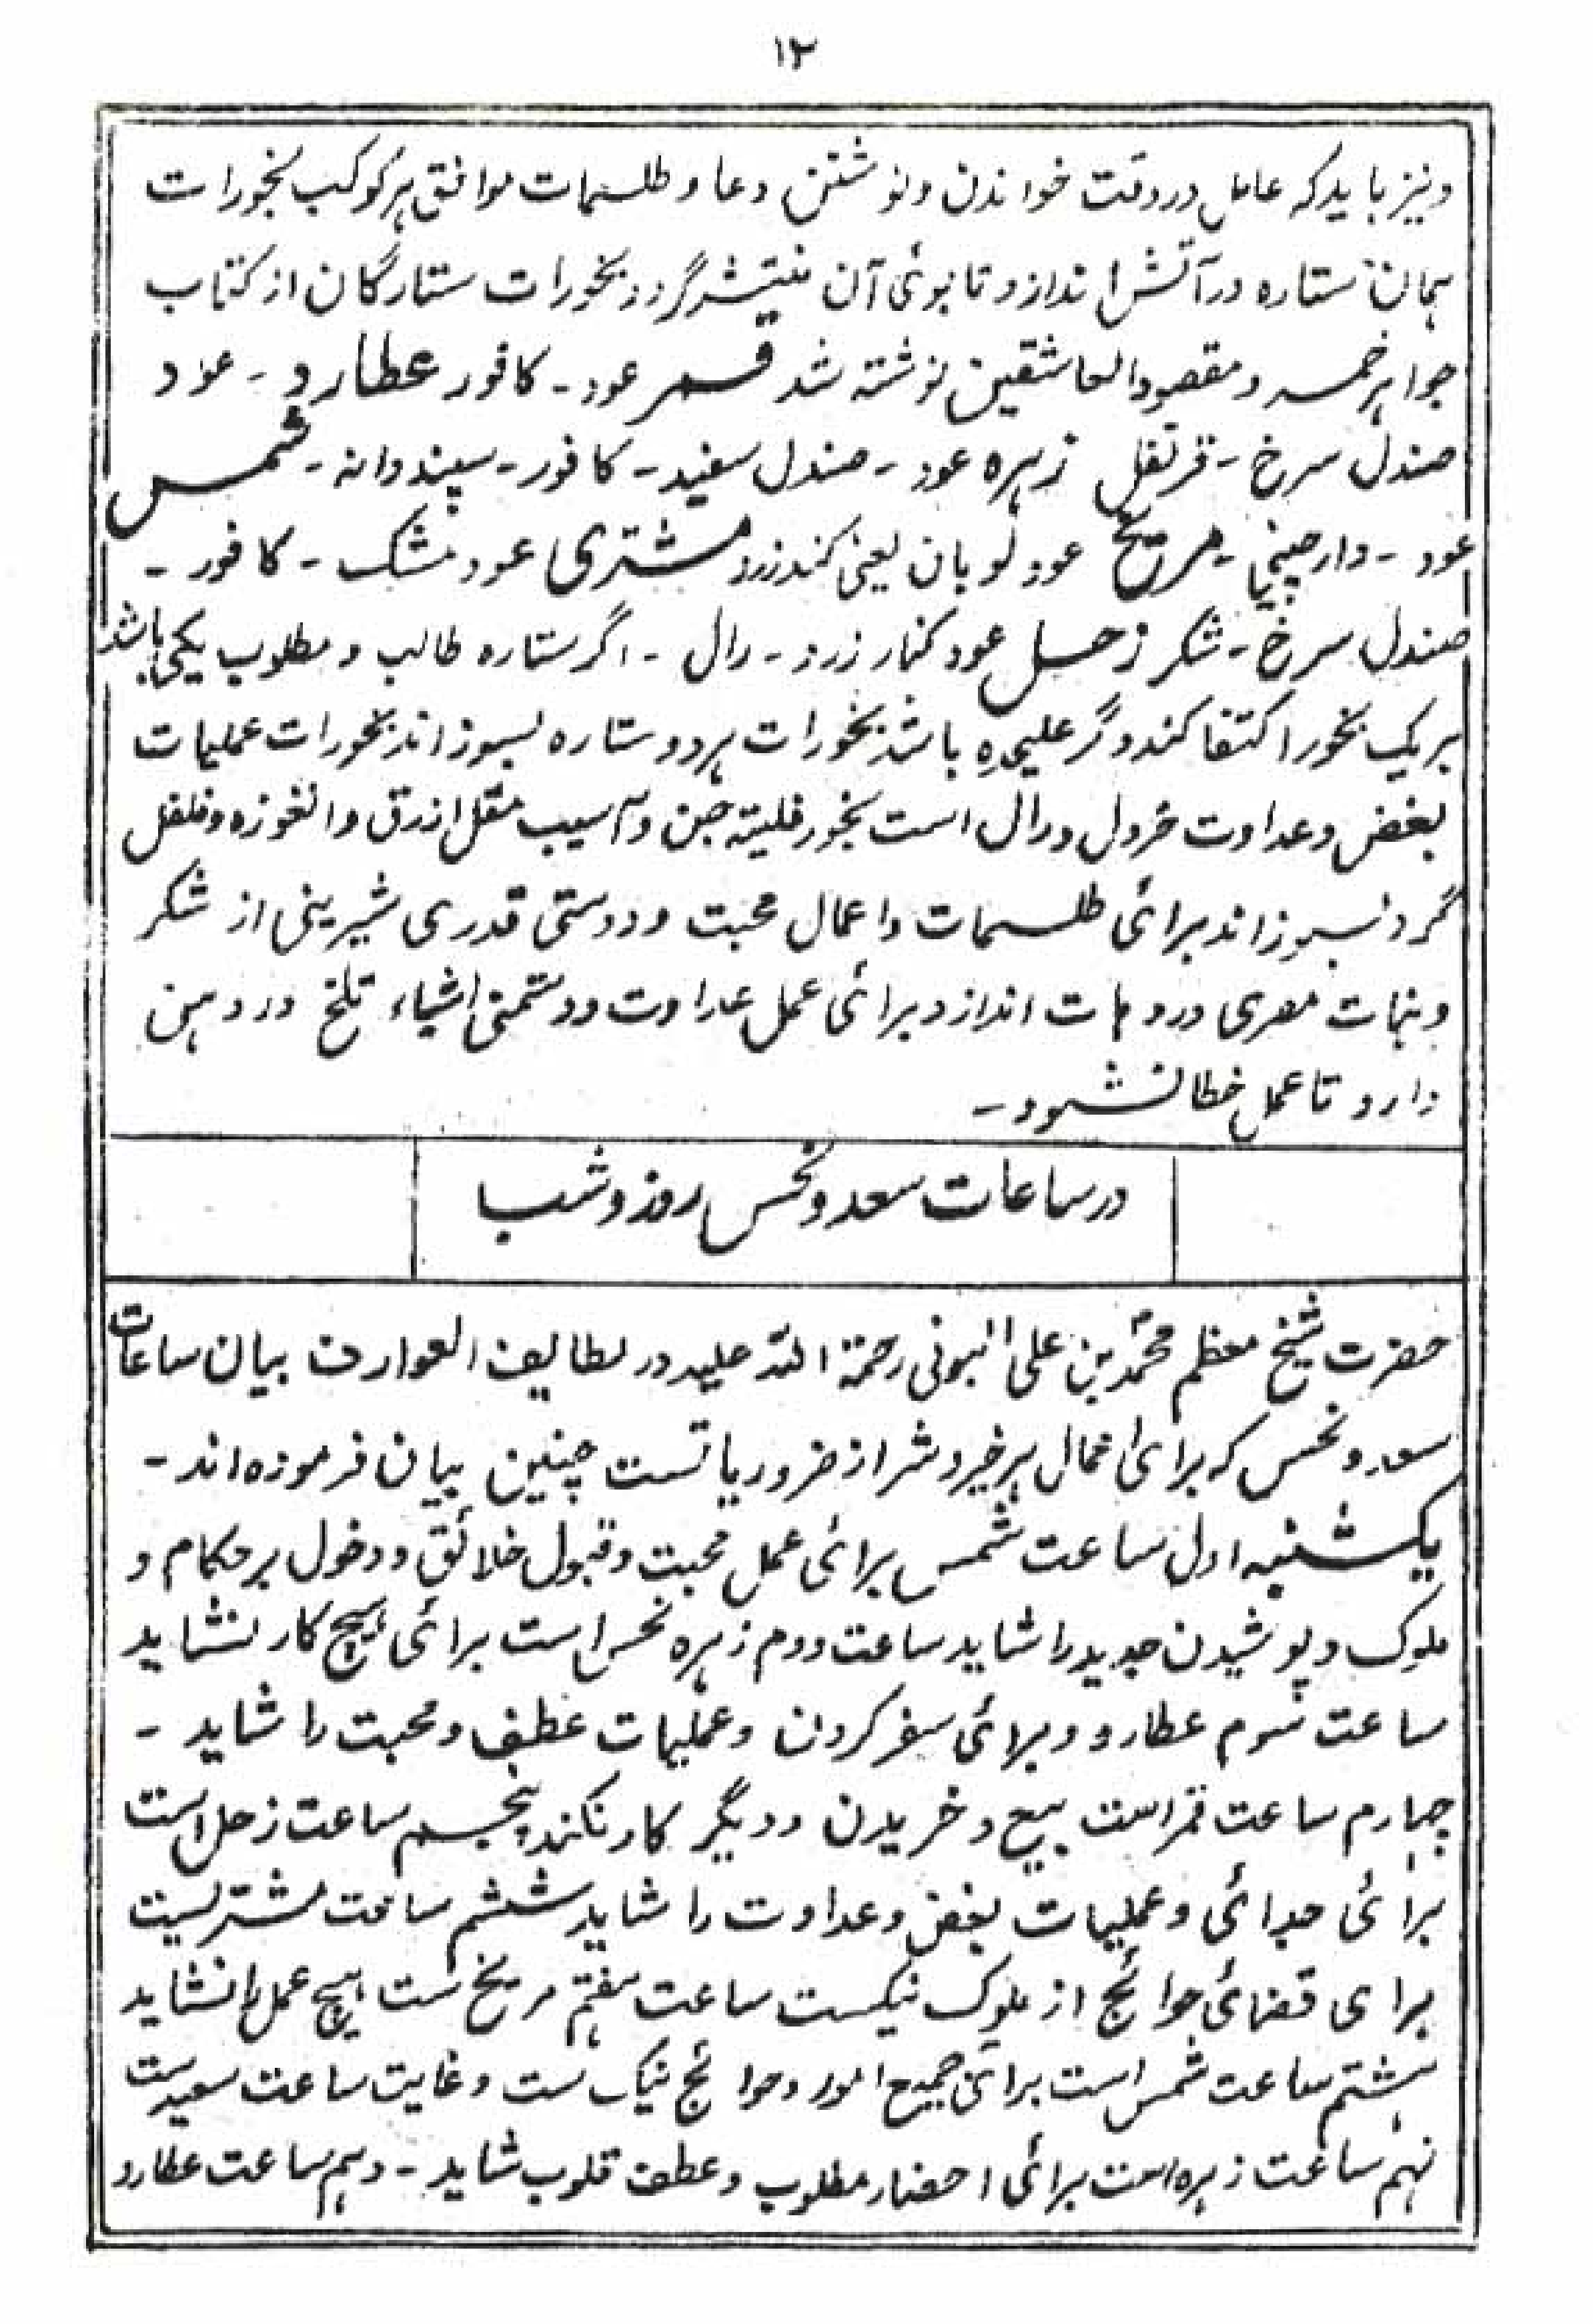 ۱۲
ونیز باید که عامل در وقت خواندن ونوشتن دعا و طلسمات موافق ہر کوکب بخورات
ہمان ستاره در آتش اندازد تا بوئی آن منتشر گردد بخورات ستارگان از کتاب
جواہر خمسہ و مقصود العاشقین نوشته شد قمر عود - کافور عطارد - عود
صندل سرخ - قرنفل زہرہ عود - صندل سفید - کافور - سپند دانہ - شمس
عود - دارچینی - مریخ عود لوبان یعنی کندرزرد مشتری عود مشک - کافور -
صندل سرخ - شکر زحل عود کنار زرد - رال - اگر ستاره طالب و مطلوب یکی باشد
بر یک بخور اکتفا کند وگر علیحدہ باشد بخورات ہر دو ستاره بسوزاند بخورات عملیات
بغض وعداوت خردل ورال است بخور فلیتہ جن وآسیب مقل ازرق وانغوزه وفلفل
گرد بسوزاند برائی طلسمات واعمال محبت ودوستی قدری شیرینی از شکر
ونبات مصری در دہات اندازد برائی عمل عداوت ودشمنی اشیاء تلخ در دہن
دارد تا عمل خطا نشود -
در ساعات سعد ونحس روز وشب
حضرت شیخ معظم محمد بن علی البونی رحمة اللہ علیہ در لطایف العوارف بیان ساعات
سعد ونحس که برائی اعمال ہر خیر وشر از ضروریاتست چنین بیان فرموده اند -
یکشنبه اول ساعت شمس برائی عمل محبت وقبول خلائق ودخول بر حکام و
ملوک وپوشیدن جدید را شاید ساعت دوم زہرہ نحس است برائی ہیچ کار نشاید
ساعت سوم عطارد وبرائی سفر کردن وعملیات عطف ومحبت را شاید -
چہارم ساعت قمر است بیع وخریدن ودیگر کار نکند پنجم ساعت زحل است
برائی جدائی وعملیات بغض وعداوت را شاید ششم ساعت مشتریست
برای قضائی حوائج از ملوک نیکست ساعت ہفتم مریخ ست ہیچ عمل را نشاید
ہشتم ساعت شمس است برائی جمیع امور وحوائج نیک ست وغایت ساعت سعیدست
نہم ساعت زہرہ است برائی احضار مطلوب وعطف قلوب شاید - دہم ساعت عطارد